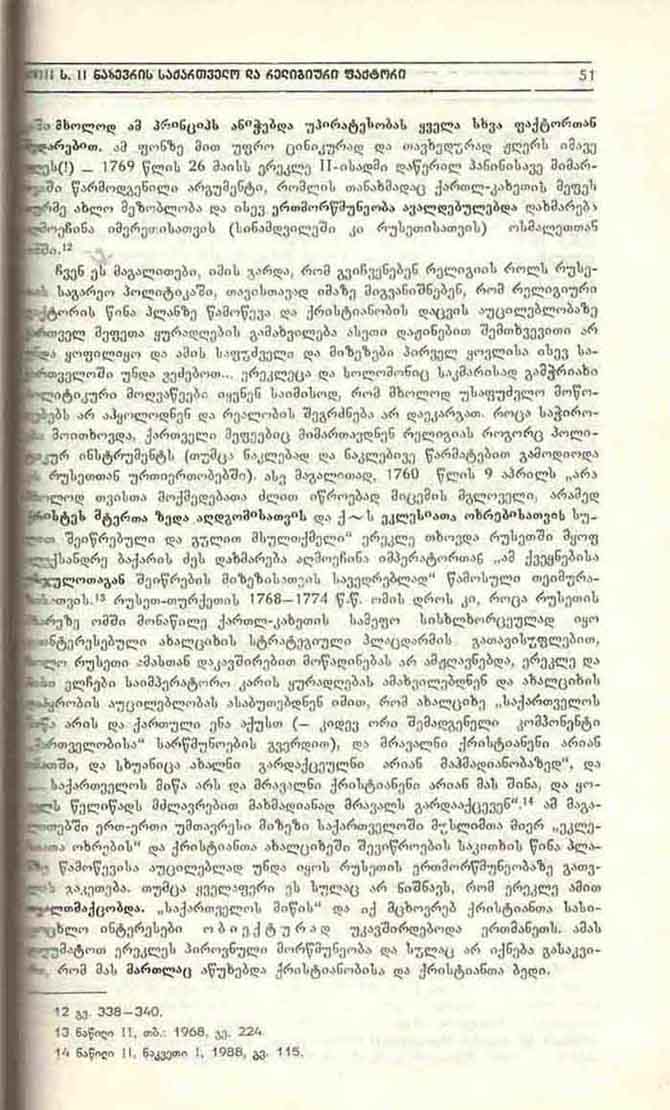 ს. II ნახევრის საქართველო და რელიგიური ფაქტორი 51
მხოლოდ ამ პრინციპს ანიჭებდა უპირატესობას ყველა სხვა ფაქტორთან
ამ ფონზე მით უფრო ცინიკურად და თავხედურად ჟღერს იმავე
(!) — 1769 წლის 26 მაისს ერეკლე II-ისადმი დაწერილ პანინისავე მიმარ-
წარმოდგენილი არგუმენტი, რომლის თანახმადაც ქართლ-კახეთის მეფეს
ახლო მეზობლობა და ისევ ერთმორწმუნეობა ავალდებულებდა დახმარება
იმერეთისათვის (სინამდვილეში კი რუსეთისათვის) ოსმალეთთან
12
ჩვენ ეს მაგალითები, იმის გარდა, რომ გვიჩვენებენ რელიგიის როლს რუსე-
საგარეო პოლიტიკაში, თავისთავად იმაზე მიგვანიშნებენ, რომ რელიგიური
წინა პლანზე წამოწევა და ქრისტიანობის დაცვის აუცილებლობაზე
მეფეთა ყურადღების გამახვილება ასეთი დაჟინებით შემთხვევითი არ
ყოფილიყო და ამის საფუძველი და მიზეზები პირველ ყოვლისა ისევ სა-
უნდა ვეძებოთ... ერეკლეცა და სოლომონიც საკმარისად გამჭრიახი
მოღვაწეები იყვნენ საიმისოდ, რომ მხოლოდ უსაფუძვლო მოწო-
არ აჰყოლოდნენ და რეალობის შეგრძნება არ დაეკარგათ. როცა საჭირო-
მოითხოვდა, ქართველი მეფეებიც მიმართავდნენ რელიგიას როგორც პოლი-
ინსტრუმენტს (თუმცა ნაკლებად და ნაკლებივე წარმატებით გამოდიოდა
რუსეთთან ურთიერთობებში). ასე მაგალითად, 1760 წლის 9 აპრილს „არა
თვისთა მოქმედებათა ძლით იწროებად მიცემის მგლოველი, არამედ
მტერთა ზედა აღდგომისათვის და ქ~ს ეკლესიათა ოხრებისათვის სუ-
შეიწრებული და გულით მსულთქმელი“ ერეკლე თხოვდა რუსეთში მყოფ
ბაქარის ძეს დახმარება აღმოეჩინა იმპერატორთან „ამ ქვეყნებისა
შეიწრების მიზეზისათვის სავედრებლად“ წამოსული თეიმურა-
13 რუსეთ-თურქეთის 1768—1774 წ.წ. ომის დროს კი, როცა რუსეთის
ომში მონაწილე ქართლ-კახეთის სამეფო სისხლხორცეულად იყო
ახალციხის სტრატეგიული პლაცდარმის გათავისუფლებით,
რუსეთი ამასთან დაკავშირებით მოწადინებას არ ამჟღავნებდა, ერეკლე და
ელჩები საიმპერატორო კარის ყურადღებას ამახვილებდნენ და ახალციხის
აუცილებლობას ასაბუთებდნენ იმით, რომ ახალციხე „საქართველოს
არის და ქართული ენა აქუსთ (— კიდევ ორი შემადგენელი კომპონენტი
სარწმუნოების გვერდით), და მრავალნი ქრისტიანენი არიან
და სხუანიცა ახალნი გარდაქცეულნი არიან მაჰმადიანობაზედ“, და
საქართველოს მიწა არს და მრავალნი ქრისტიანენი არიან მას შინა, და ყო-
წელიწადს მძლავრებით მახმადიანად მრავალს გარდააქცევენ“.14 ამ მაგა-
ერთ-ერთი უმთავრესი მიზეზი საქართველოში მუსლიმთა მიერ „ეკლე-
ოხრების“ და ქრისტიანთა ახალციხეში შევიწროების საკითხის წინა პლა-
წამოწევისა აუცილებლად უნდა იყოს რუსეთის ერთმორწმუნეობაზე გათვ-
გაკეთება. თუმცა ყველაფერი ეს სულაც არ ნიშნავს, რომ ერეკლე ამით
„საქართველოს მიწის“ და იქ მცხოვრებ ქრისტიანთა სასი-
ინტერესები ობიექტურად უკავშირდებოდა ერთმანეთს. ამას
ერეკლეს პიროვნული მორწმუნეობა და სულაც არ იქნება გასაკვი-
რომ მას მართლაც აწუხებდა ქრისტიანობისა და ქრისტიანთა ბედი.
12 გვ. 338—340.
13 ნაწილი II, თბ.: 1968, გვ. 224.
14 ნაწილი II, ნაკვეთი I, 1988, გვ. 115.